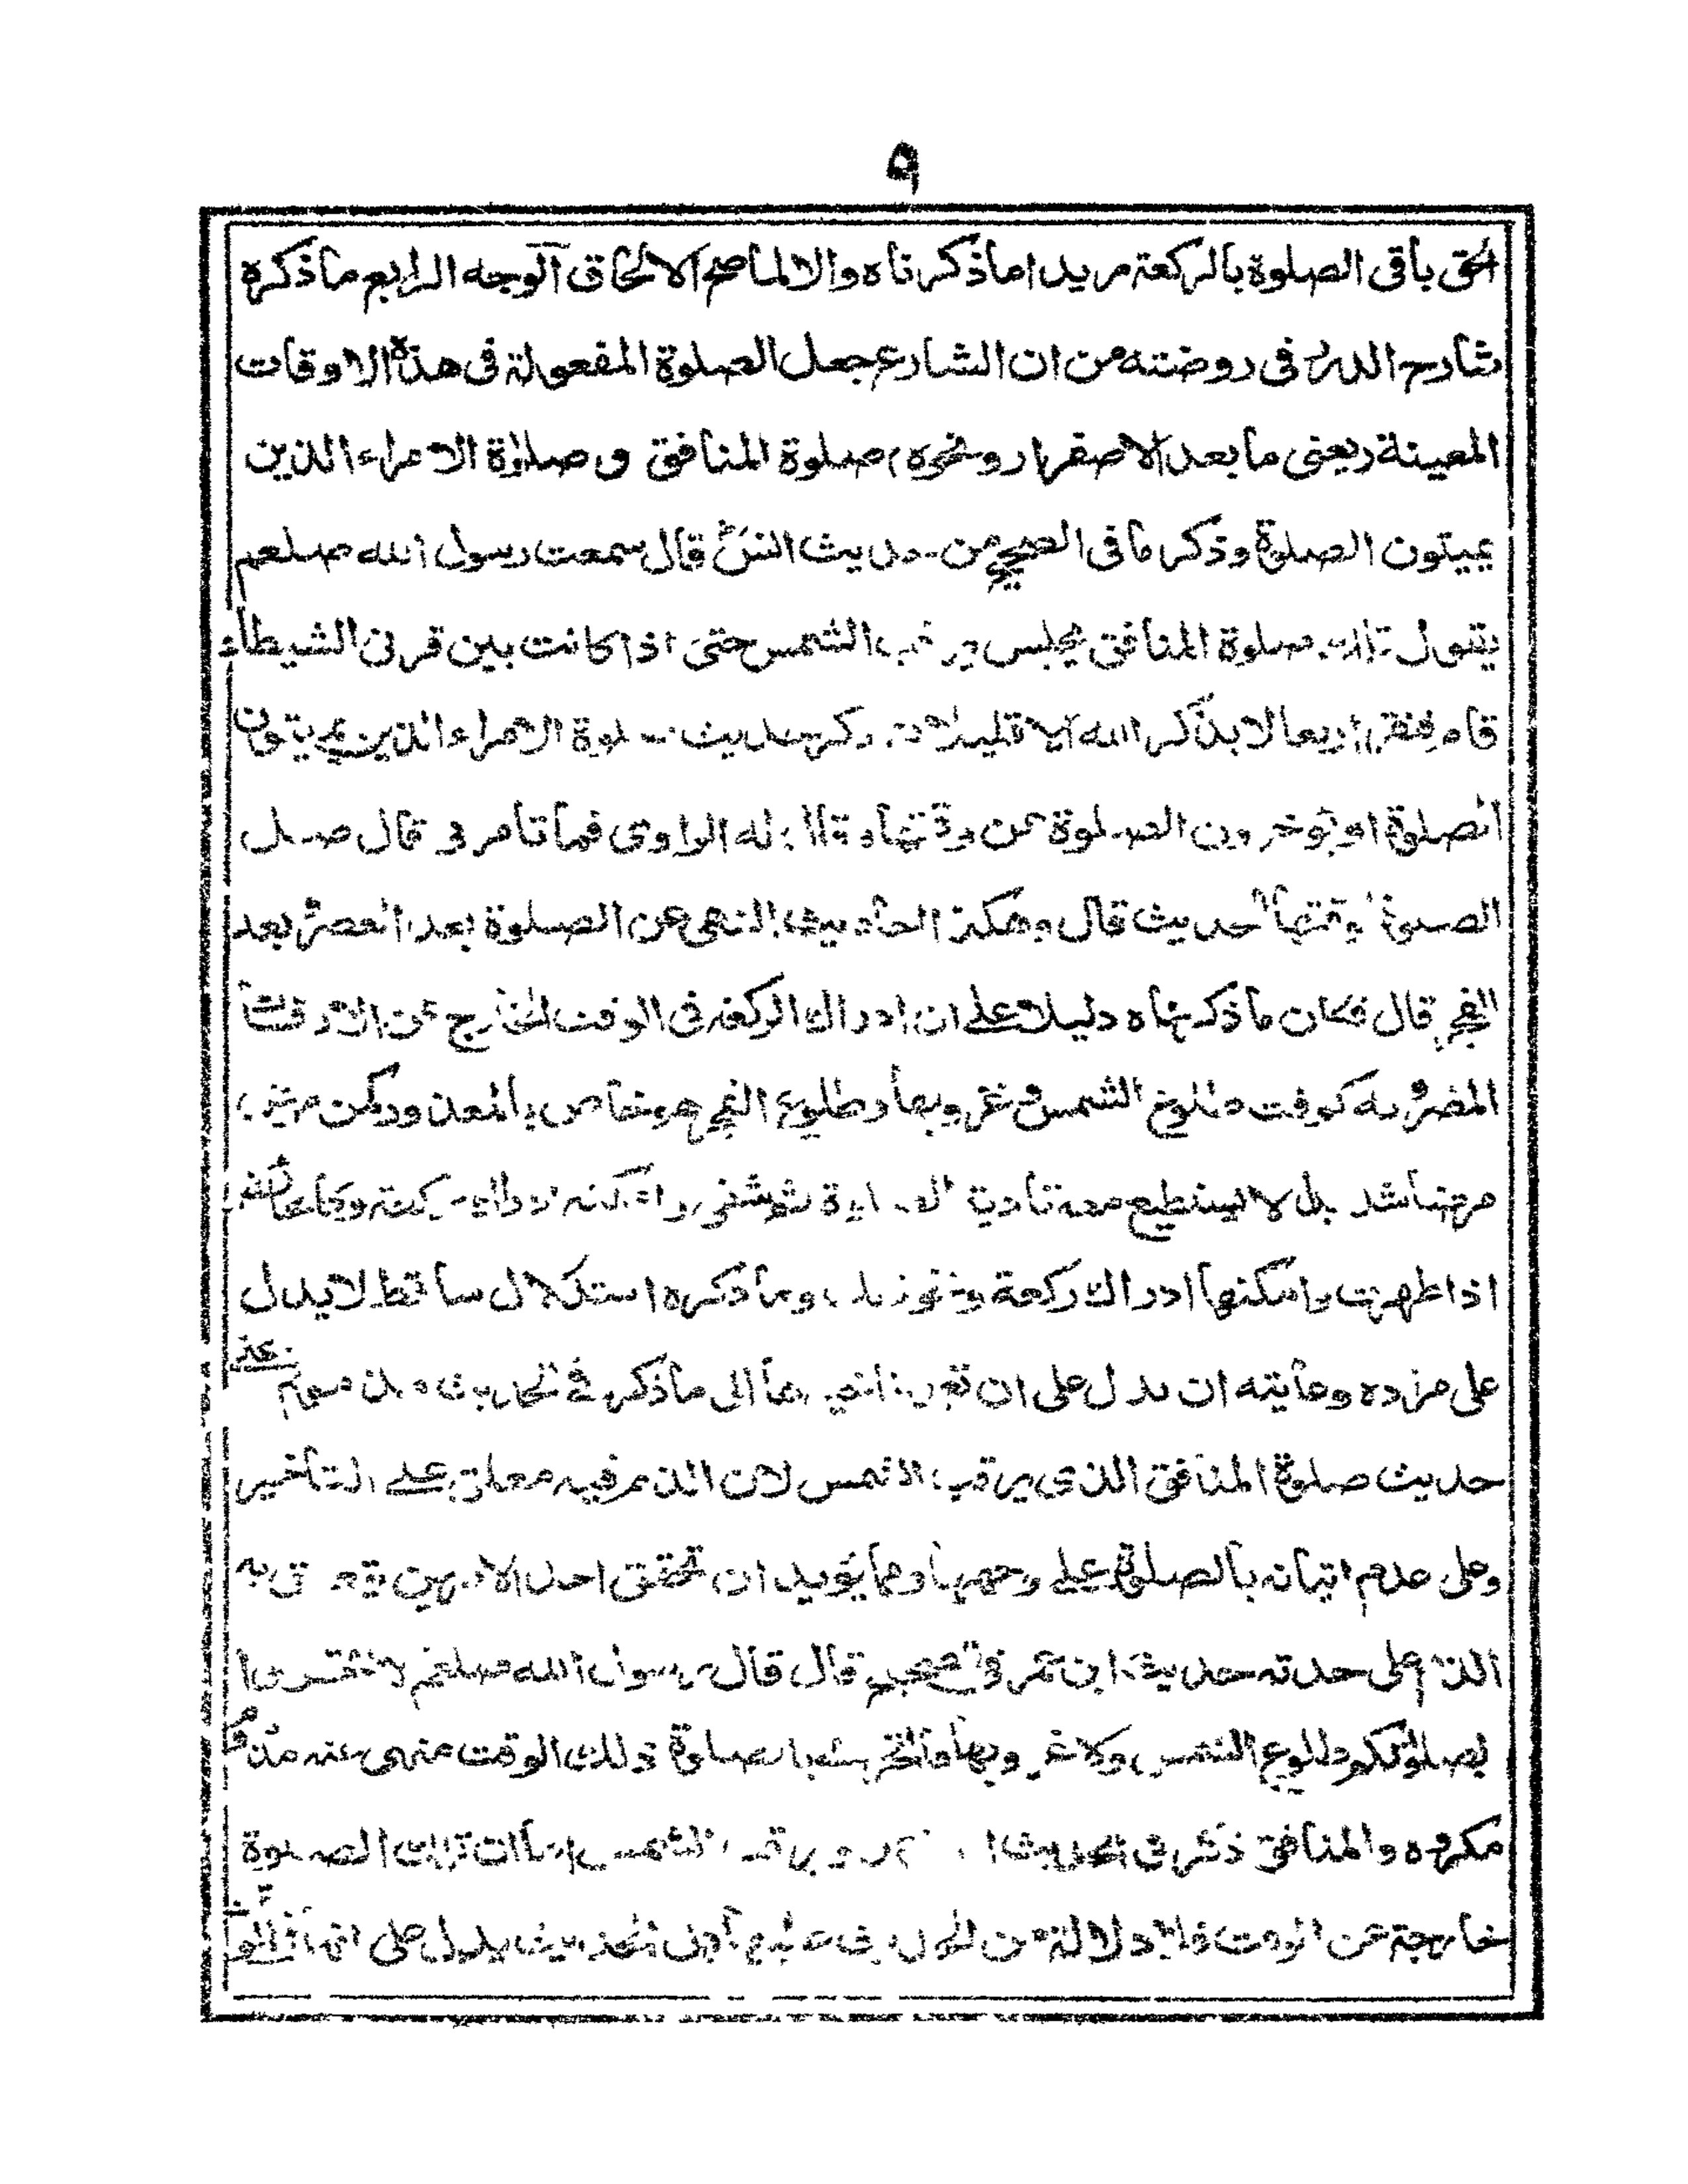 ٩
الحق باقى الصلوة بالركعة مريدا ماذكرناه والا لما صح الالحاق الوجه الرابع ماذكره
شارح الدرر فى روضته من ان الشارع جعل الصلوة المفعولة فى هذه الاوقات
المعينة (يعنى مابعد الاصفرار ونحوه) صلوة المنافق وصلاة الامراء الذين
يميتون الصلوة وذكر مافى الصحيح من حديث انسؓ قال سمعت رسول الله صلعم
يقول تلك صلوة المنافق يجلس يرقب الشمس حتى اذا كانت بين قرنى الشيطان
قام فنقر اربعا لايذكر الله الا قليلا وذكر حديث صلوة الامراء الذين يميتون
الصلوة او يوخرون الصلوة عن وقتها وقال له الراوى فما تامرنى قال صل
الصلوة لوقتها الحديث قال وهكذا احاديث النهى عن الصلوة بعد العصر وبعد
الفجر قال فكان ماذكرناه دليلا على ان ادراك الركعة فى الوقت الخارج عن الاوقات
المضروبة كوقت طلوع الشمس وغروبها وطلوع الفجر هو خاص بالمعذور كمن مرض
مرضا شد بل لا يستطيع معه تادية الصلوة ثم شفى وامكنه ادراك ركعة وكالحائض
اذا طهرت وامكنها ادراك ركعة ونحو ذلك وماذكره استدلال ساقط لايدل
على مراده وغايته ان يدل على ان تعمد التاخير الى ماذكر فى الحديث
حديث صلوة المنافق الذى يرقب الشمس لان الذم فيه معلق على التاخير
وعلى عدم اتيانه بالصلوة على وجهها ومما يؤيد ان تحقق احد الامرين يتعلق به
الذم على حدته حديث ابن عمر فى الصحيح قال قال رسول الله صلعم لا تتحروا
بصلوتكم طلوع الشمس ولا غروبها فالتحرى بالصلوة ذلك الوقت منهى عنه مذموم
مكروه والمنافق ذكر فى الحديث يرقب الشمس واما ان تلك الصلوة
خارجة عن الوقت فلا دلالة من الحديث عليه